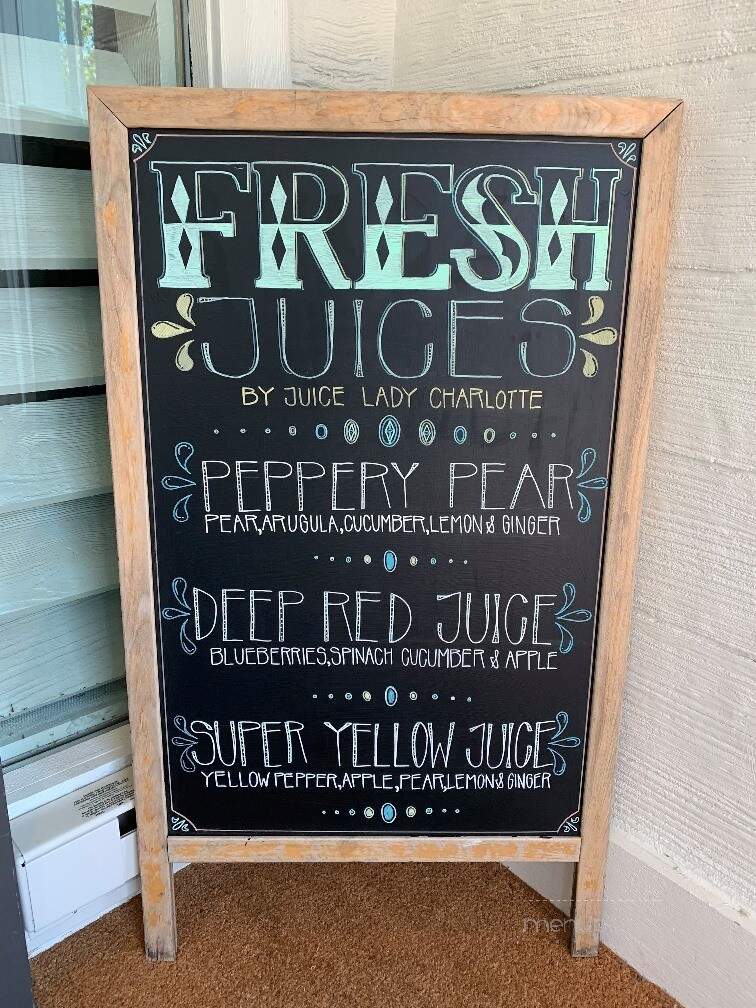 FRESH
JUICES
BY JUICE LADY CHARLOTTE
PEPPERY PEAR
PEAR,ARUGULA,CUCUMBER,LEMON & GINGER
DEEP RED JUICE
BLUEBERRIES,SPINACH CUCUMBER & APPLE
SUPER YELLOW JUICE
YELLOW PEPPER,APPLE,PEAR,LEMON & GINGER